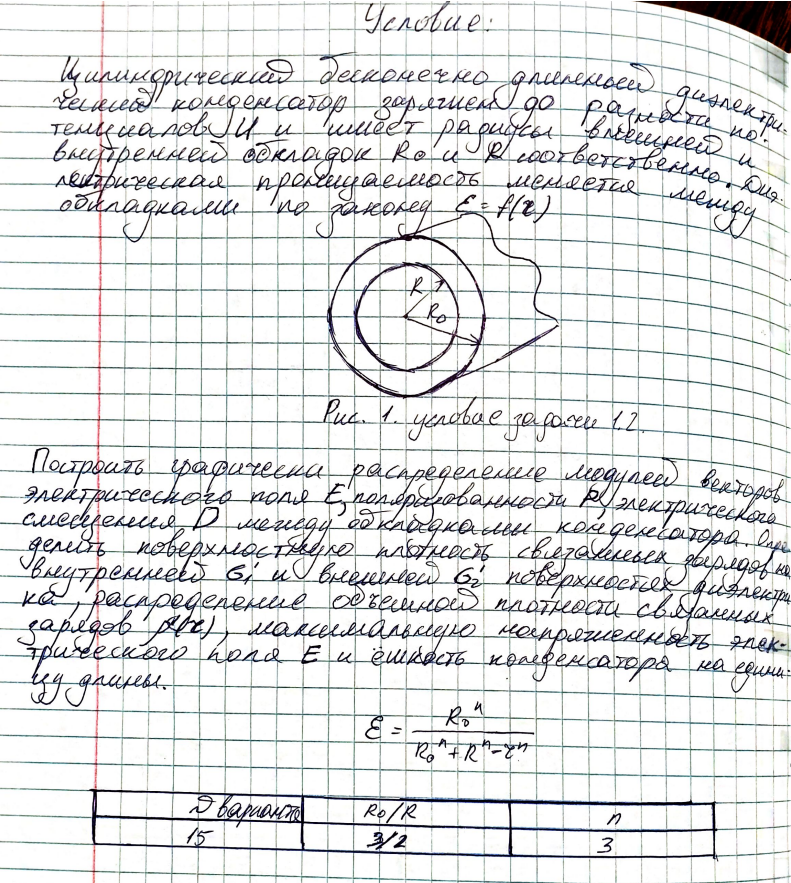 Условие:
Цилиндрический бесконечно длинный диэлектри-
ческий конденсатор заряжен до разности по-
тенциалов U и имеет радиусы внешней и
внутренней обкладок R₀ и R соответственно. Диэ-
лектрическая проницаемость меняется между
обкладками по закону ε = f(r)
R
R₀
Рис. 1. условие задачи 1.2.
Построить графически распределение модулей векторов
электрического поля E, поляризованности P, электрического
смещения D между обкладками конденсатора. Опре
делить поверхностную плотность связанных зарядов на
внутренней σ₁' и внешней σ₂' поверхностях диэлектри
ка, распределение объемной плотности связанных
зарядов ρ'(r), максимальную напряженность элек-
трического поля E и ёмкость конденсатора на едини-
цу длины.
ε = R₀ⁿ / (R₀ⁿ + Rⁿ - rⁿ)
№ варианта R₀/R n
15 3/2 3